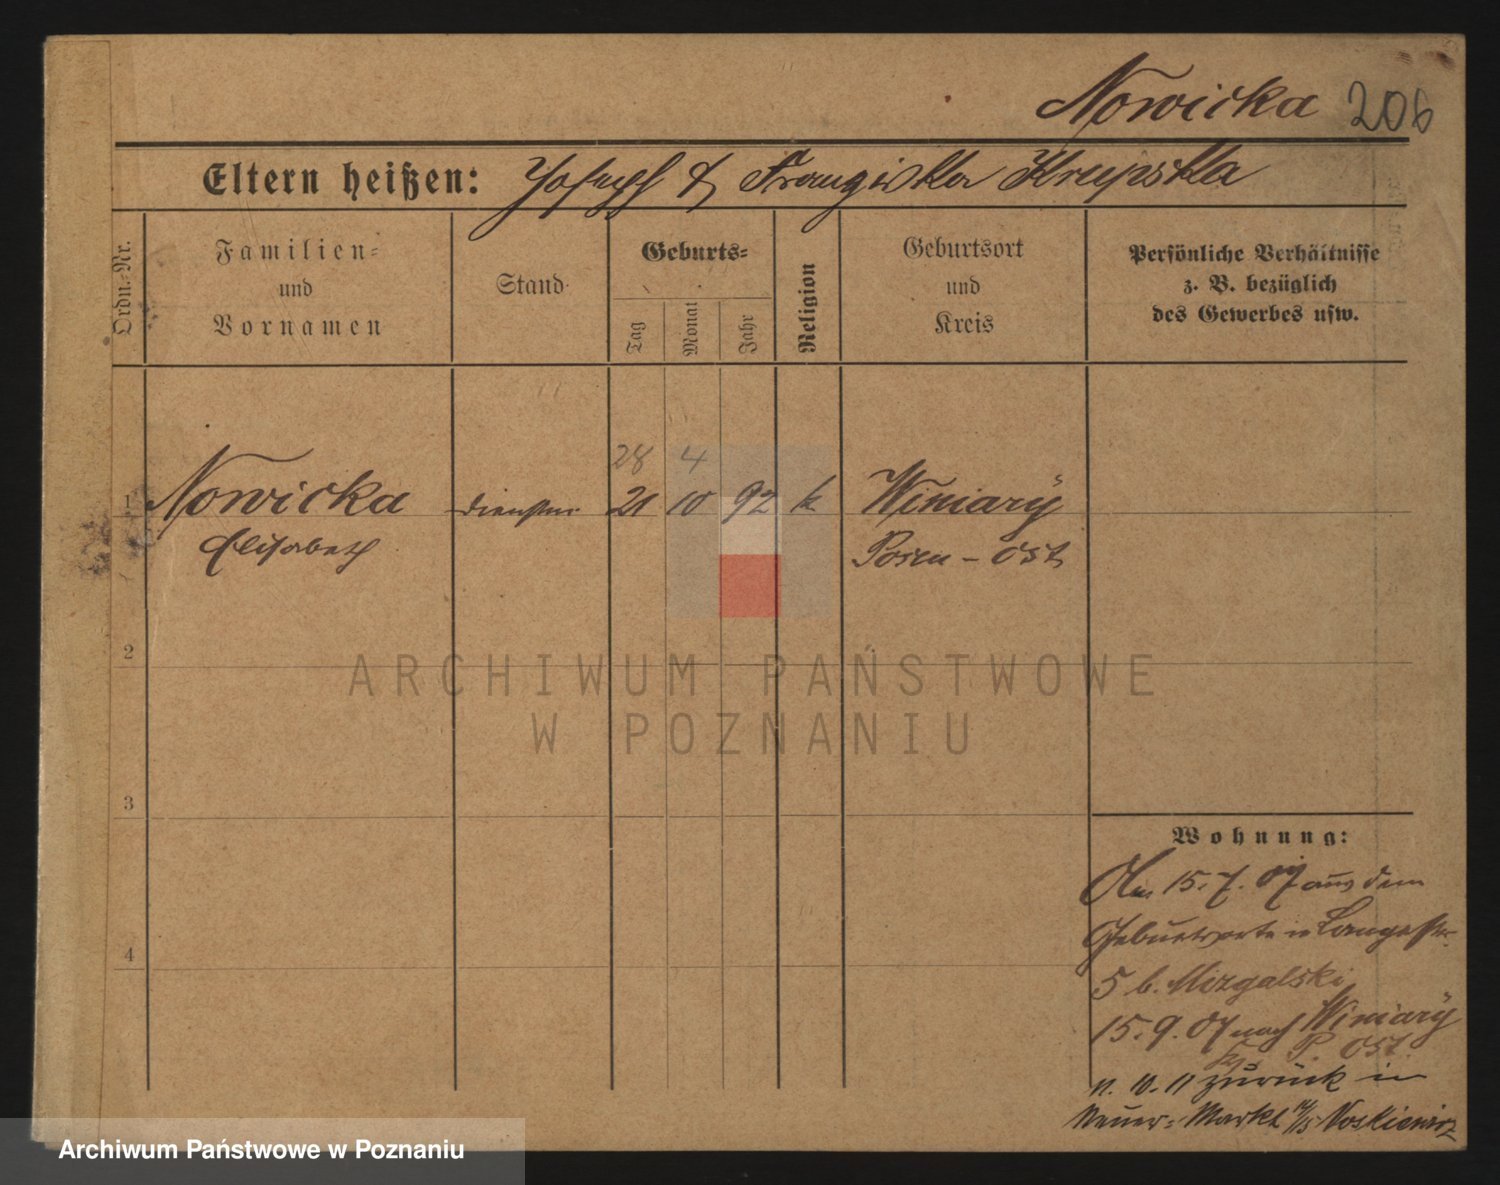 Nowicka 206
Eltern heißen: Joseph & Franziska Krupska
Ordn.=Nr.
Familien=
und
Vornamen
Stand
Geburts=
Tag
Monat
Jahr
Religion
Geburtsort
und
Kreis
Persönliche Verhältnisse
z. B. bezüglich
des Gewerbes usw.
28 4
1 Nowicka 21 10 92 k Winiary
Elisabeth Posen - Ost
2
ARCHIWUM PAŃSTWOWE
W POZNANIU
3
Wohnung:
15. 7. 07 aus dem
4
Geburtsorte n Langestr.
5 b. Mizgalski
15. 9. 07 nach Winiary
P. Ost.
11. 10. 11 zurück in
Neuer=Markt 14/15
Archiwum Państwowe w Poznaniu